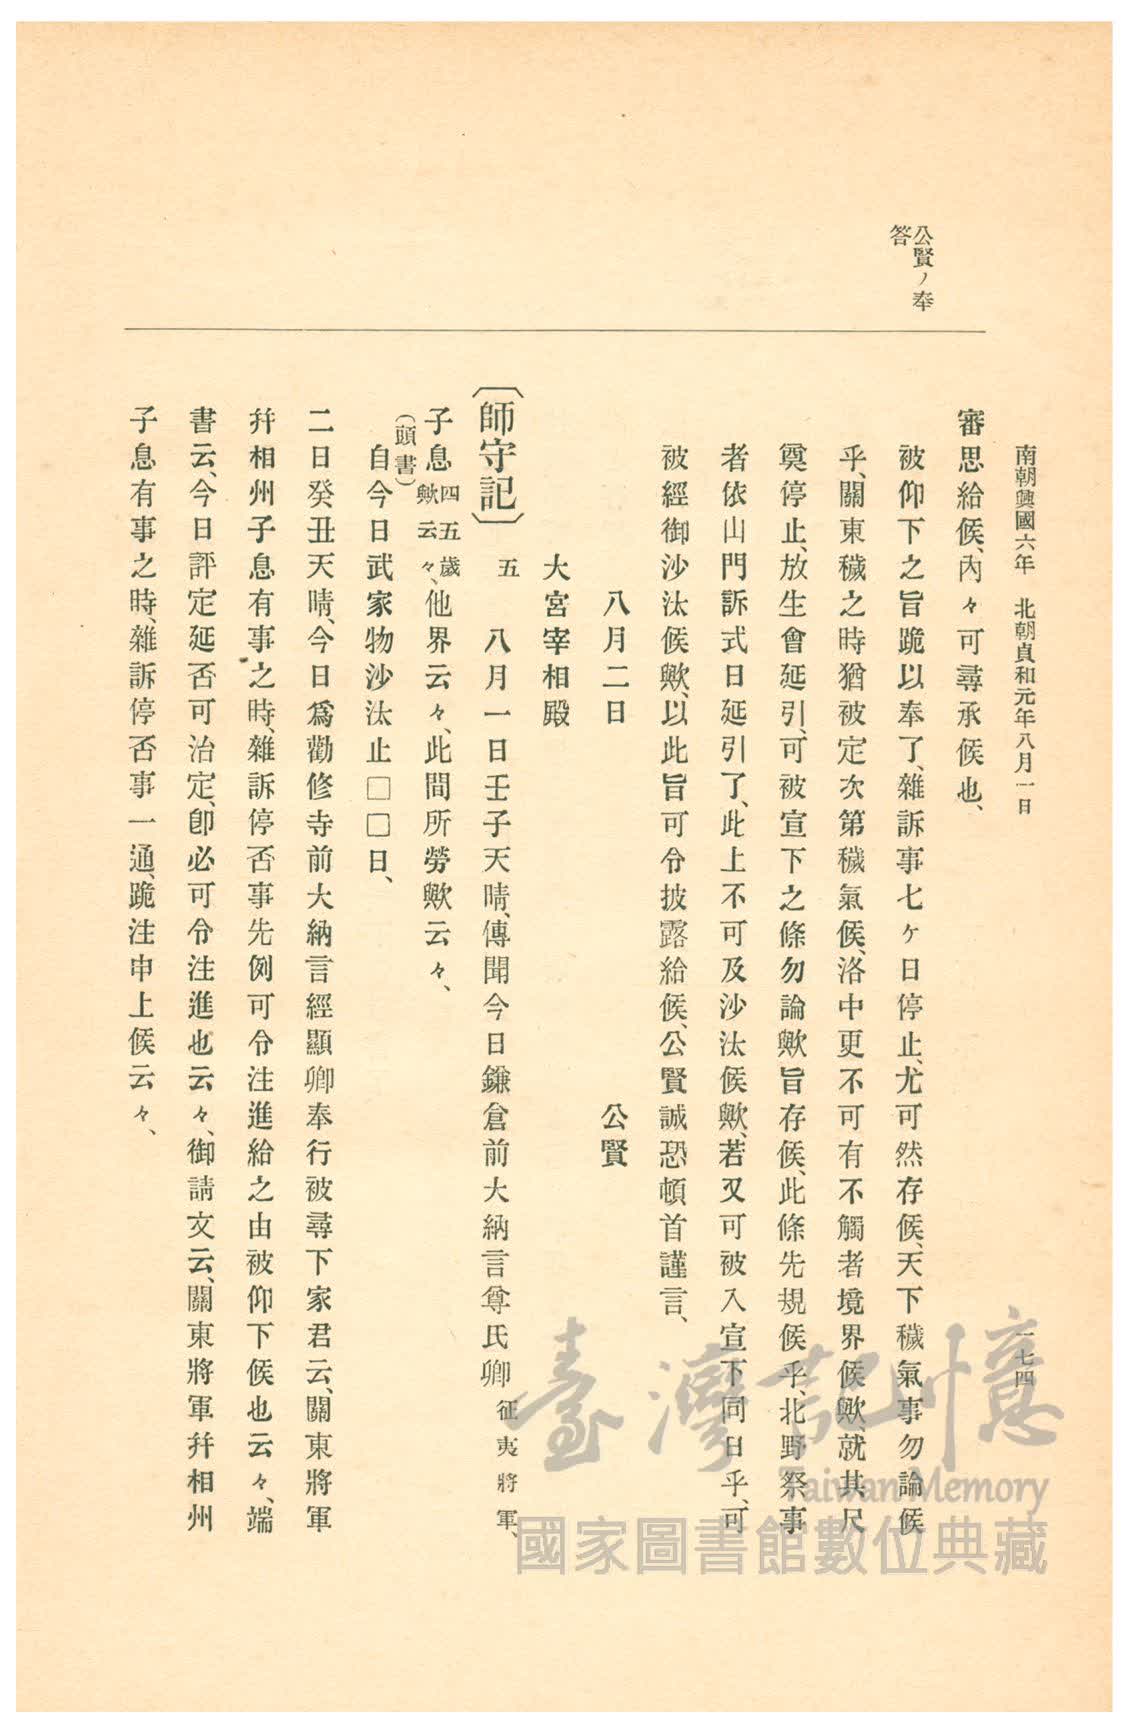 南朝興國六年 北朝貞和元年八月一日
一七四
公賢ノ奉
答
審思給候、內々可尋承候也、
被仰下之旨跪以奉了、雜訴事七ケ日停止、尤可然存候、天下穢氣事勿論候
乎、關東穢之時猶被定次第穢氣候、洛中更不可有不觸者境界候歟、就其尺
奠停止、放生會延引、可被宣下之條勿論歟旨存候、此條先規候乎、北野祭事
者依山門訴式日延引了、此上不可及沙汰候歟、若又可被入宣下同日乎、可
被經御沙汰候歟、以此旨可令披露給候、公賢誠恐頓首謹言、
八月二日 公賢
大宮宰相殿
〔師守記〕 五 八月一日壬子天晴、傳聞今日鎌倉前大納言尊氏卿征夷將軍、
子息四五歲歟云々、他界云々、此間所勞歟云々、
(頭書)
自今日武家物沙汰止□□日、
二日癸丑天晴、今日爲勸修寺前大納言經顯卿奉行被尋下家君云、關東將軍
幷相州子息有事之時、雜訴停否事先例可令注進給之由被仰下候也云々、端
書云、今日評定延否可治定、卽必可令注進也云々、御請文云、關東將軍幷相州
子息有事之時、雜訴停否事一通、跪注申上候云々、
臺灣記憶
Taiwan Memory
國家圖書館數位典藏